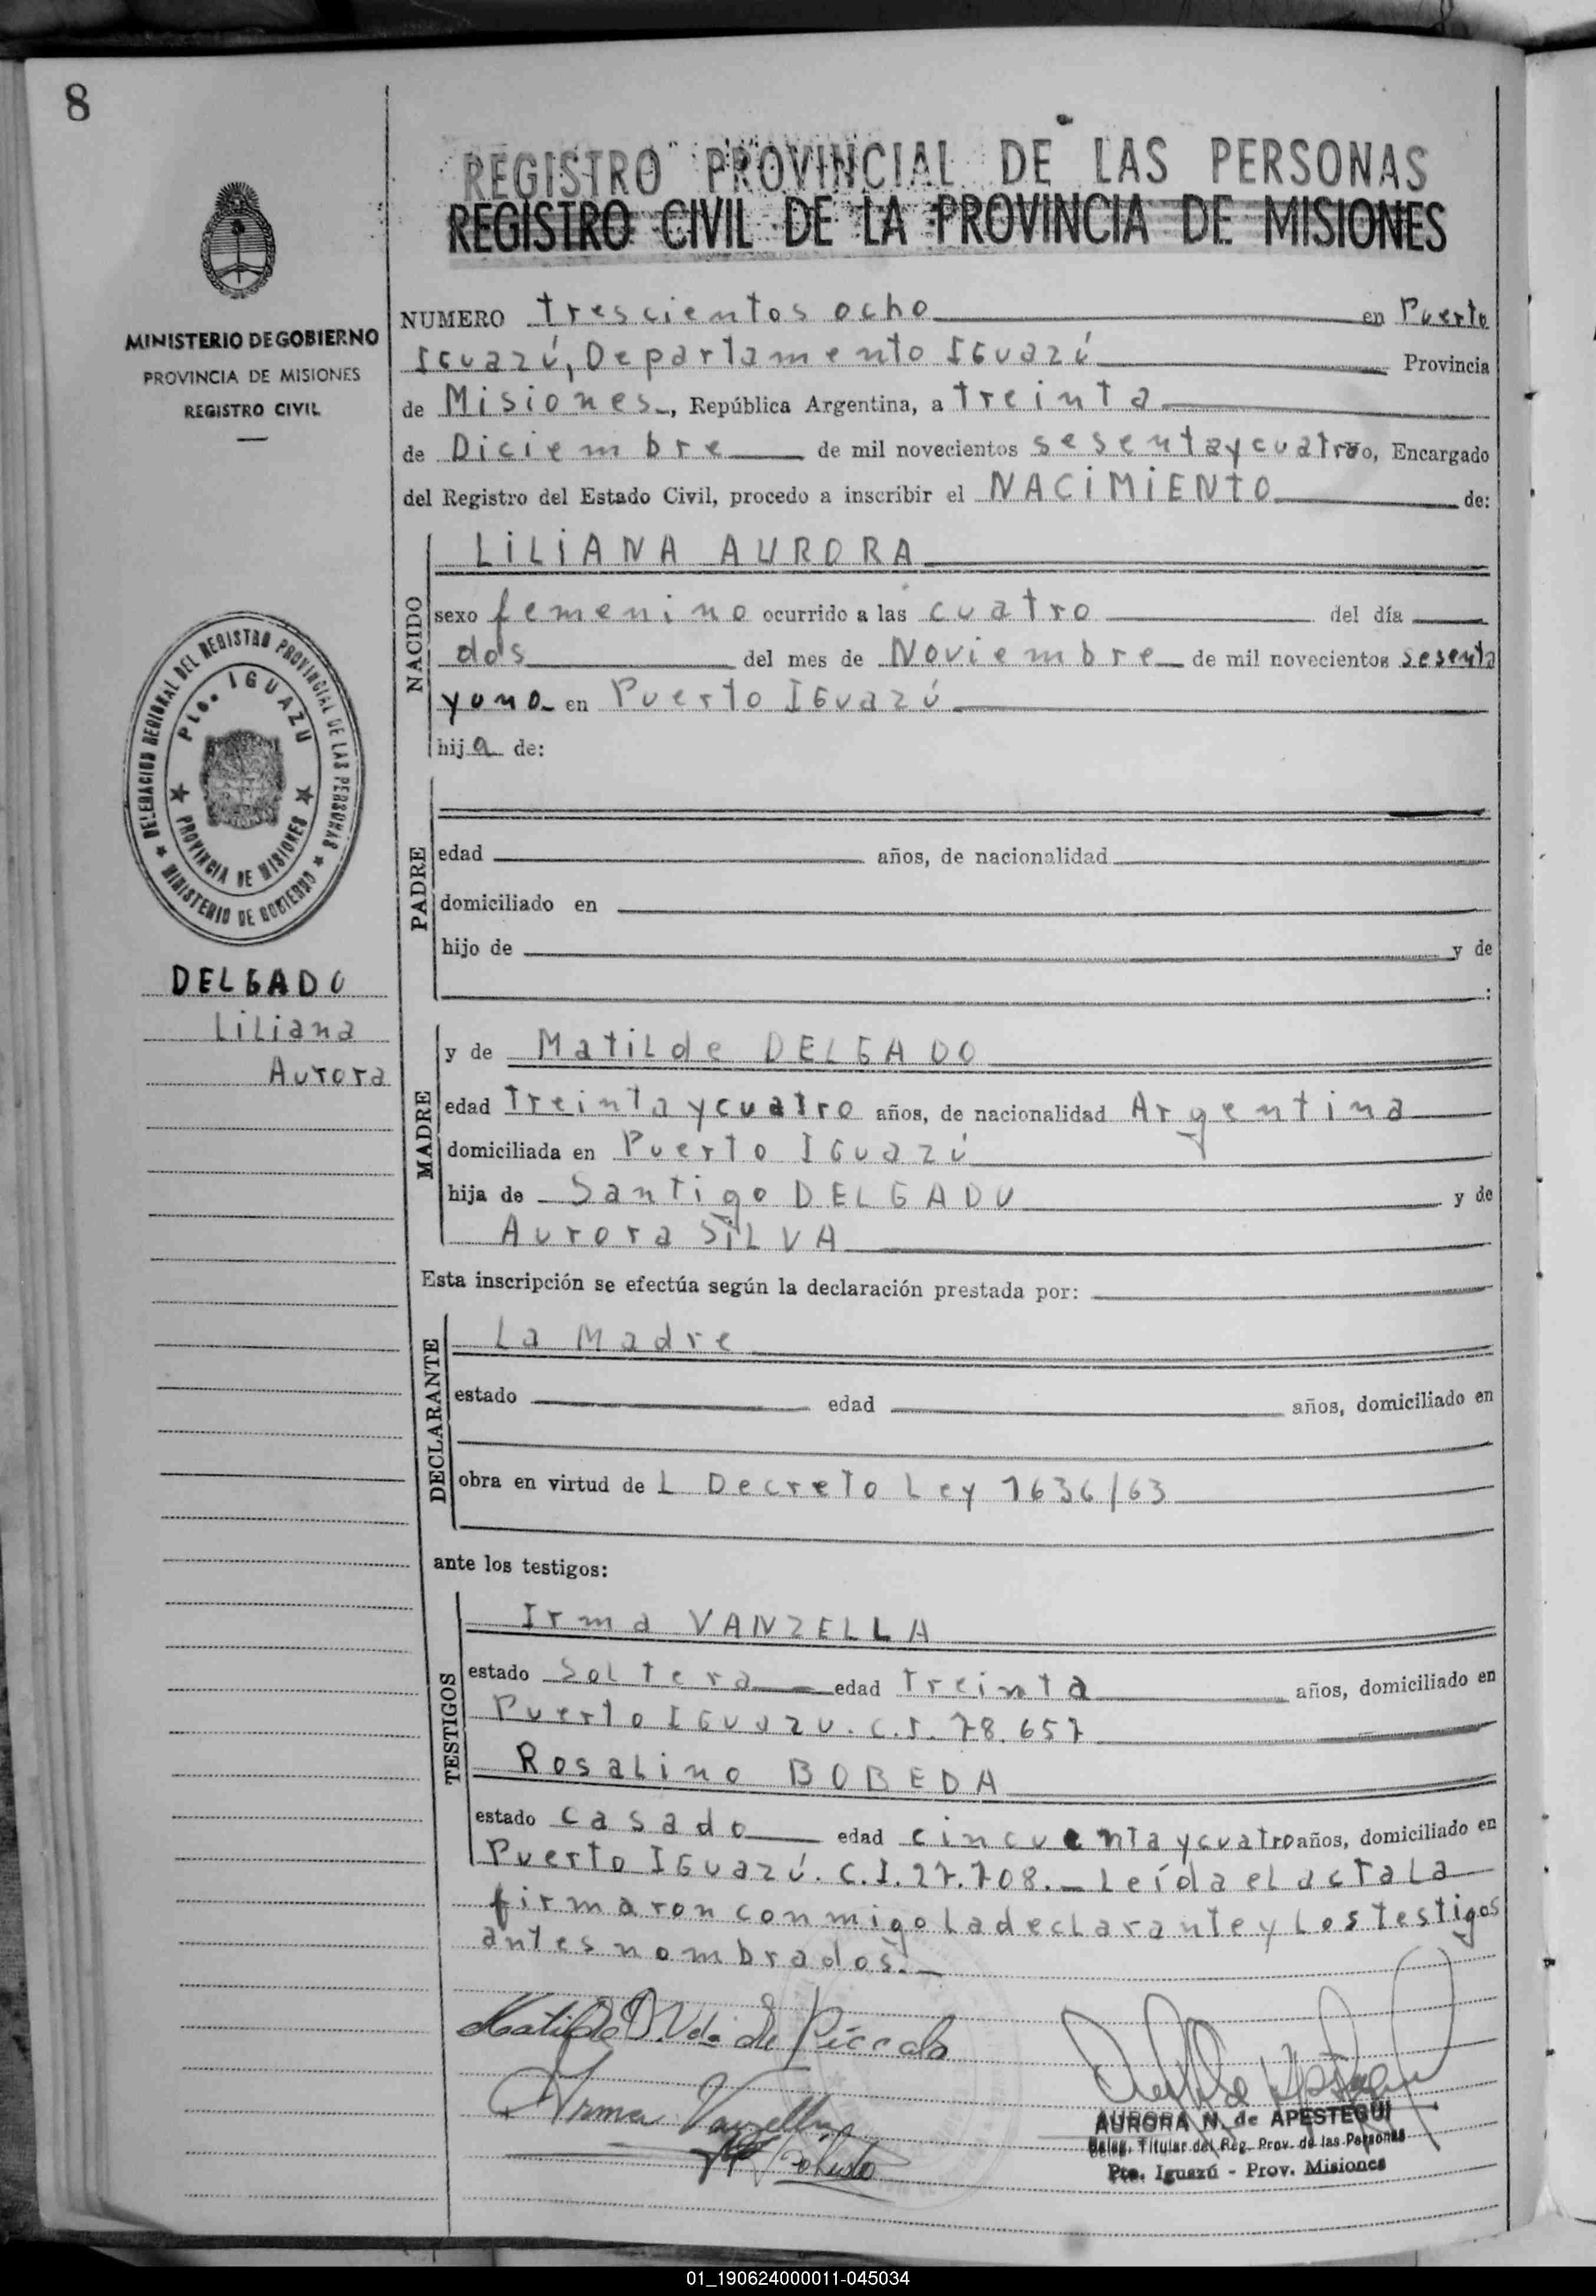 8
REGISTRO PROVINCIAL DE LAS PERSONAS
REGISTRO CIVIL DE LA PROVINCIA DE MISIONES
MINISTERIO DE GOBIERNO
PROVINCIA DE MISIONES
REGISTRO CIVIL
NUMERO trescientos ocho en Puerto
IGuazú, Departamento IGuazú Provincia
de Misiones, República Argentina, a treinta
de Diciembre de mil novecientos sesentaycuatro, Encargado
del Registro del Estado Civil, procedo a inscribir el NACiMiENTO de:
NACIDO
LiLiANA AURORA
sexo femenino ocurrido a las cuatro del día
dos del mes de Noviembre de mil novecientos sesenta
yuno en Puerto IGuazú
hija de:
DELEGACION REGIONAL DEL REGISTRO PROVINCIAL DE LAS PERSONAS
MINISTERIO DE GOBIERNO
Pto. IGUAZU
PROVINCIA DE MISIONES
DELGADO
LiLiana
Aurora
PADRE
edad años, de nacionalidad
domiciliado en
hijo de y de
:
MADRE
y de MatiLde DELGADO
edad Treintaycuatro años, de nacionalidad Argentina
domiciliada en Puerto IGuazú
hija de Santigo DELGADO y de
Aurora SiLVA
Esta inscripción se efectúa según la declaración prestada por:
DECLARANTE
La Madre
estado edad años, domiciliado en
obra en virtud de L Decreto Ley 7636/63
ante los testigos:
TESTIGOS
Irma VANZELLA
estado SoLtera edad treinta años, domiciliado en
Puerto IGuazu. C.I. 78.657
RosaLino BOBEDA
estado casado edad cincuentaycuatro años, domiciliado en
Puerto IGuazú. C.I. 27.708._ Leída eL acta La
firmaron conmigo La decLarante y Los testigos
antes nombrados._
Matilde D. Vda de Piccolo
Irma Vanzella
AURORA N. de APESTEGUI
Deleg. Titular del Reg. Prov. de las Personas
Pto. Iguazú - Prov. Misiones
01_190624000011-045034